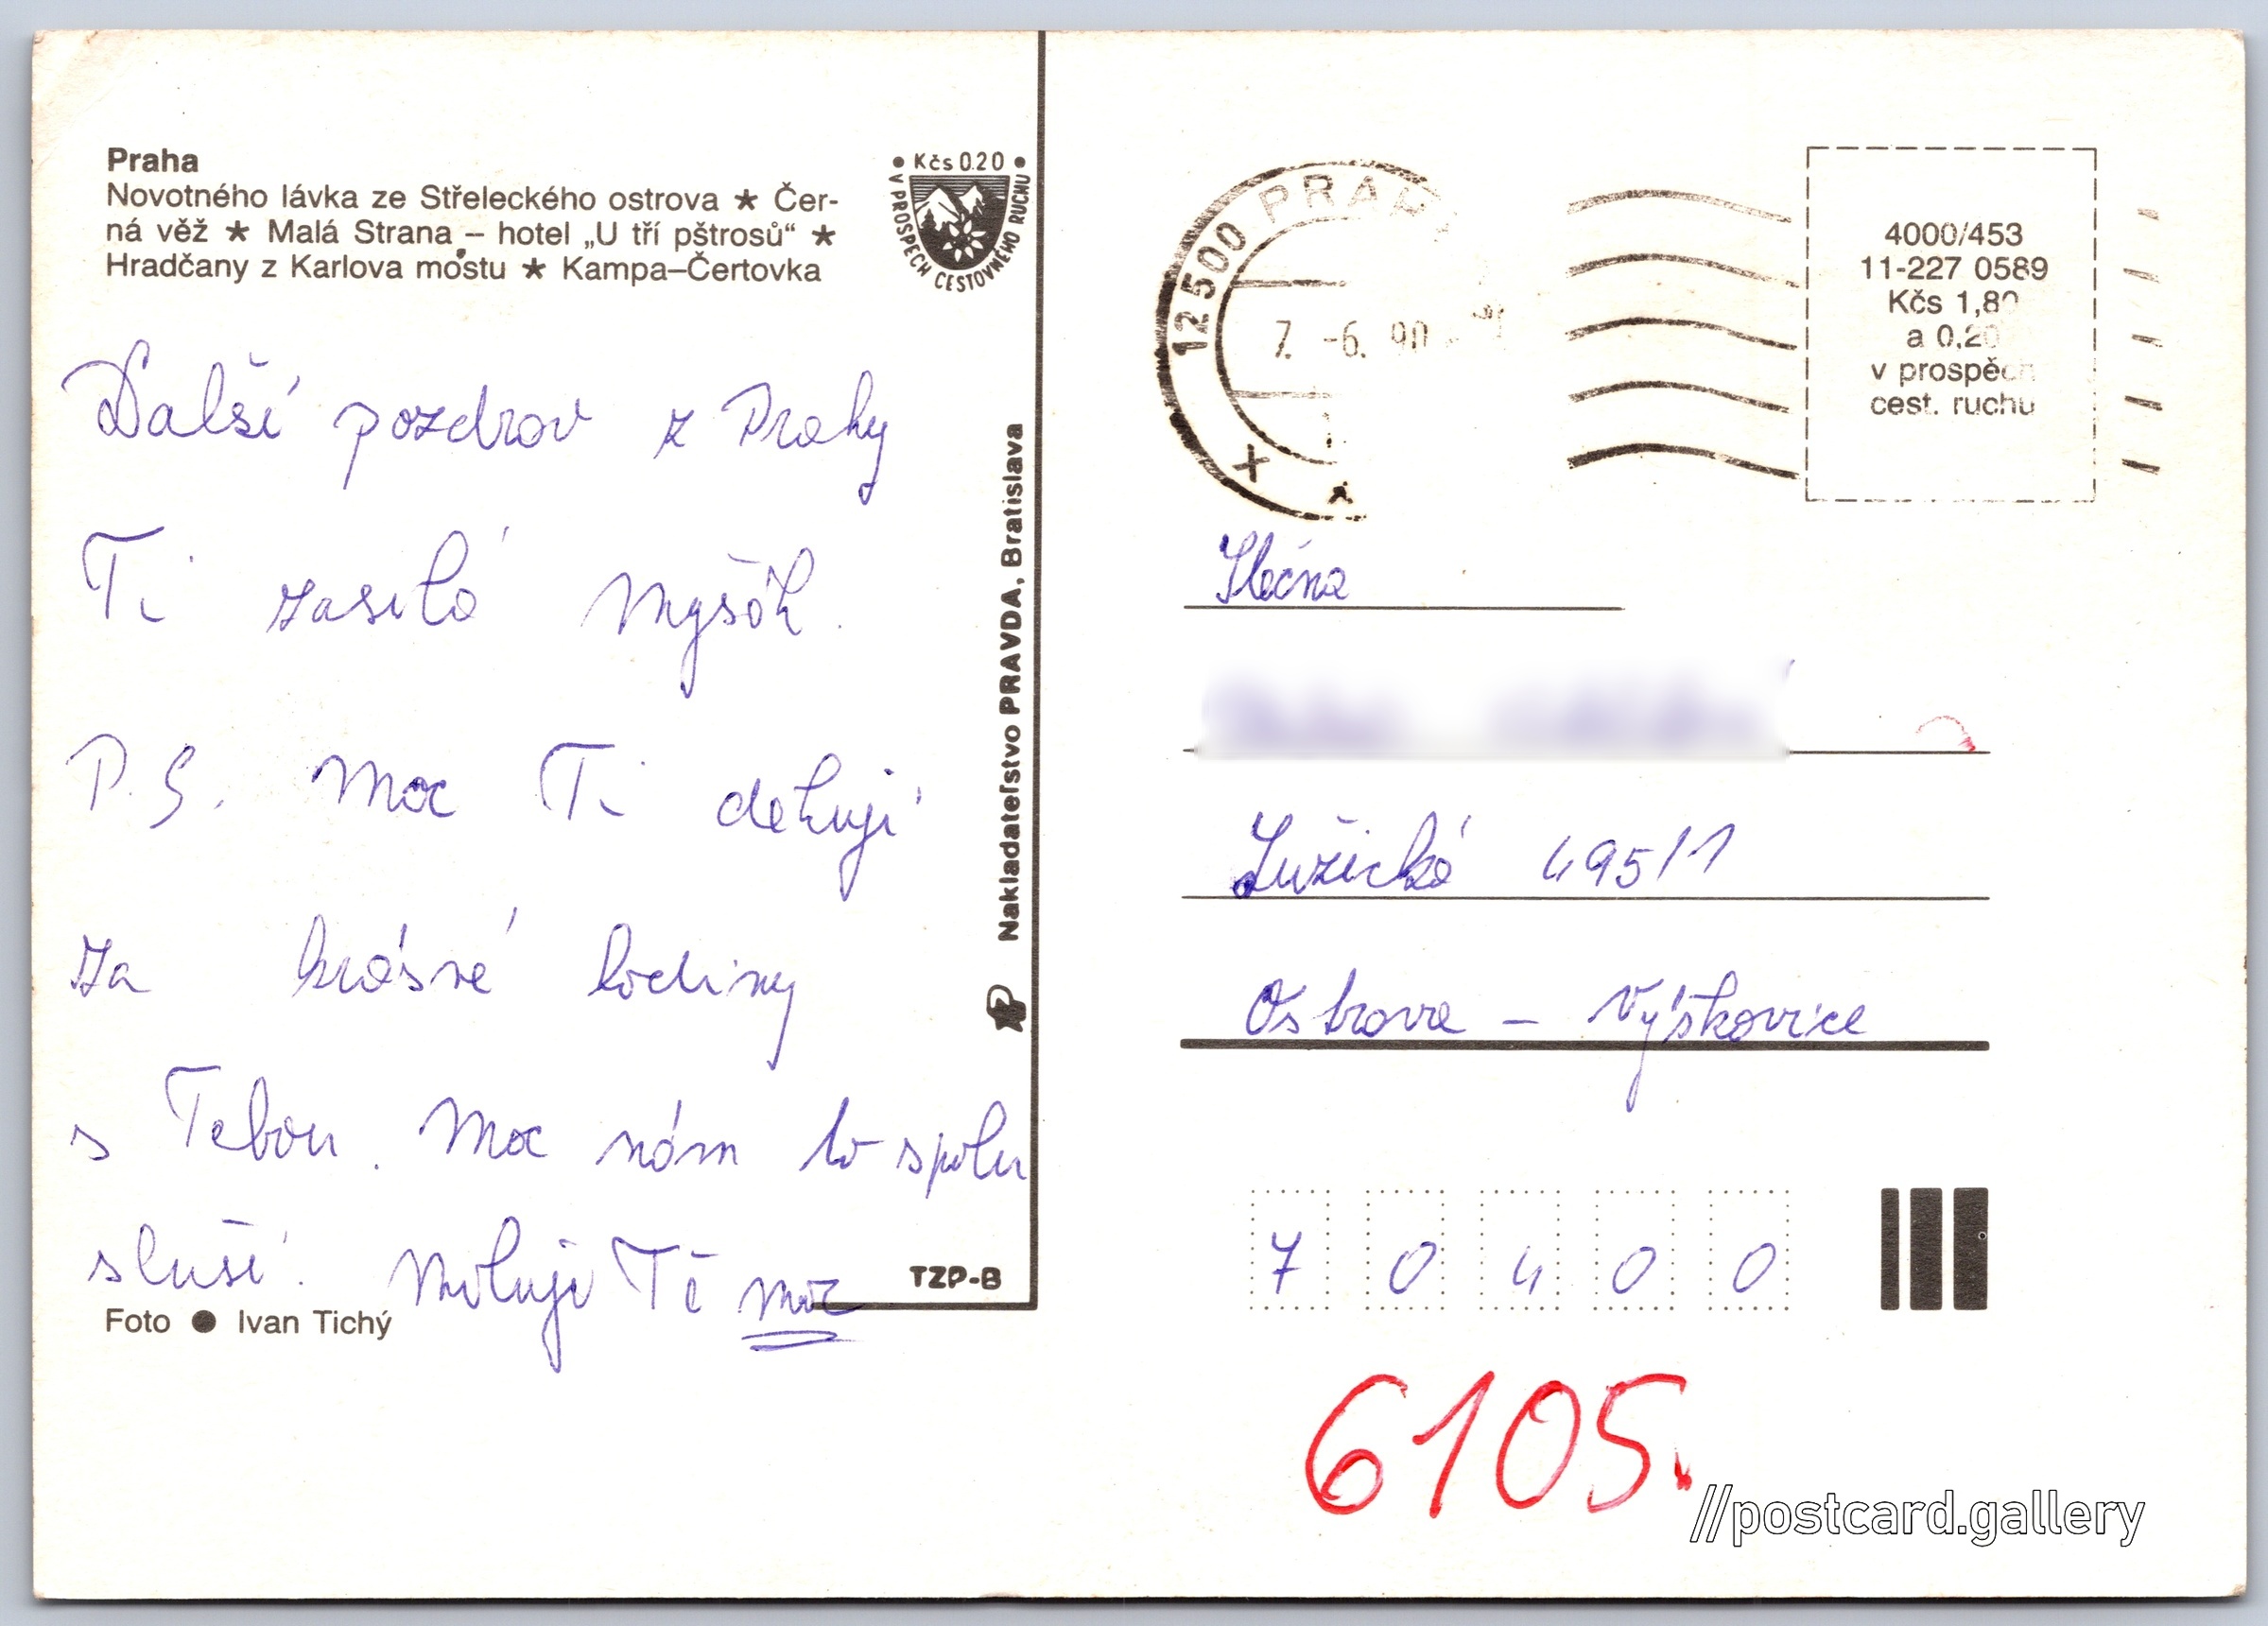 Praha
Novotného lávka ze Střeleckého ostrova ★ Čer-
ná věž ★ Malá Strana – hotel „U tří pštrosů“ ★
Hradčany z Karlova mostu ★ Kampa–Čertovka
• Kčs 0.20 •
V PROSPĚCH CESTOVNÉHO RUCHU
Další pozdrav z Prahy
Ti zasílá Myšák.
P.S. Moc Ti dekuji
za krásné hodiny
s Tebou. Moc nám to spolu
sluší. Miluji Tě moc
TZP-B
Foto ● Ivan Tichý
Nakladateľstvo PRAVDA, Bratislava
12500 PRAHA
7. -6. 90
4000/453
11-227 0589
Kčs 1,80
a 0,20
v prospěch
cest. ruchu
Slečna
Lužická 495/1
Ostrava – Výškovice
7 0 4 0 0
6105.
//postcard.gallery